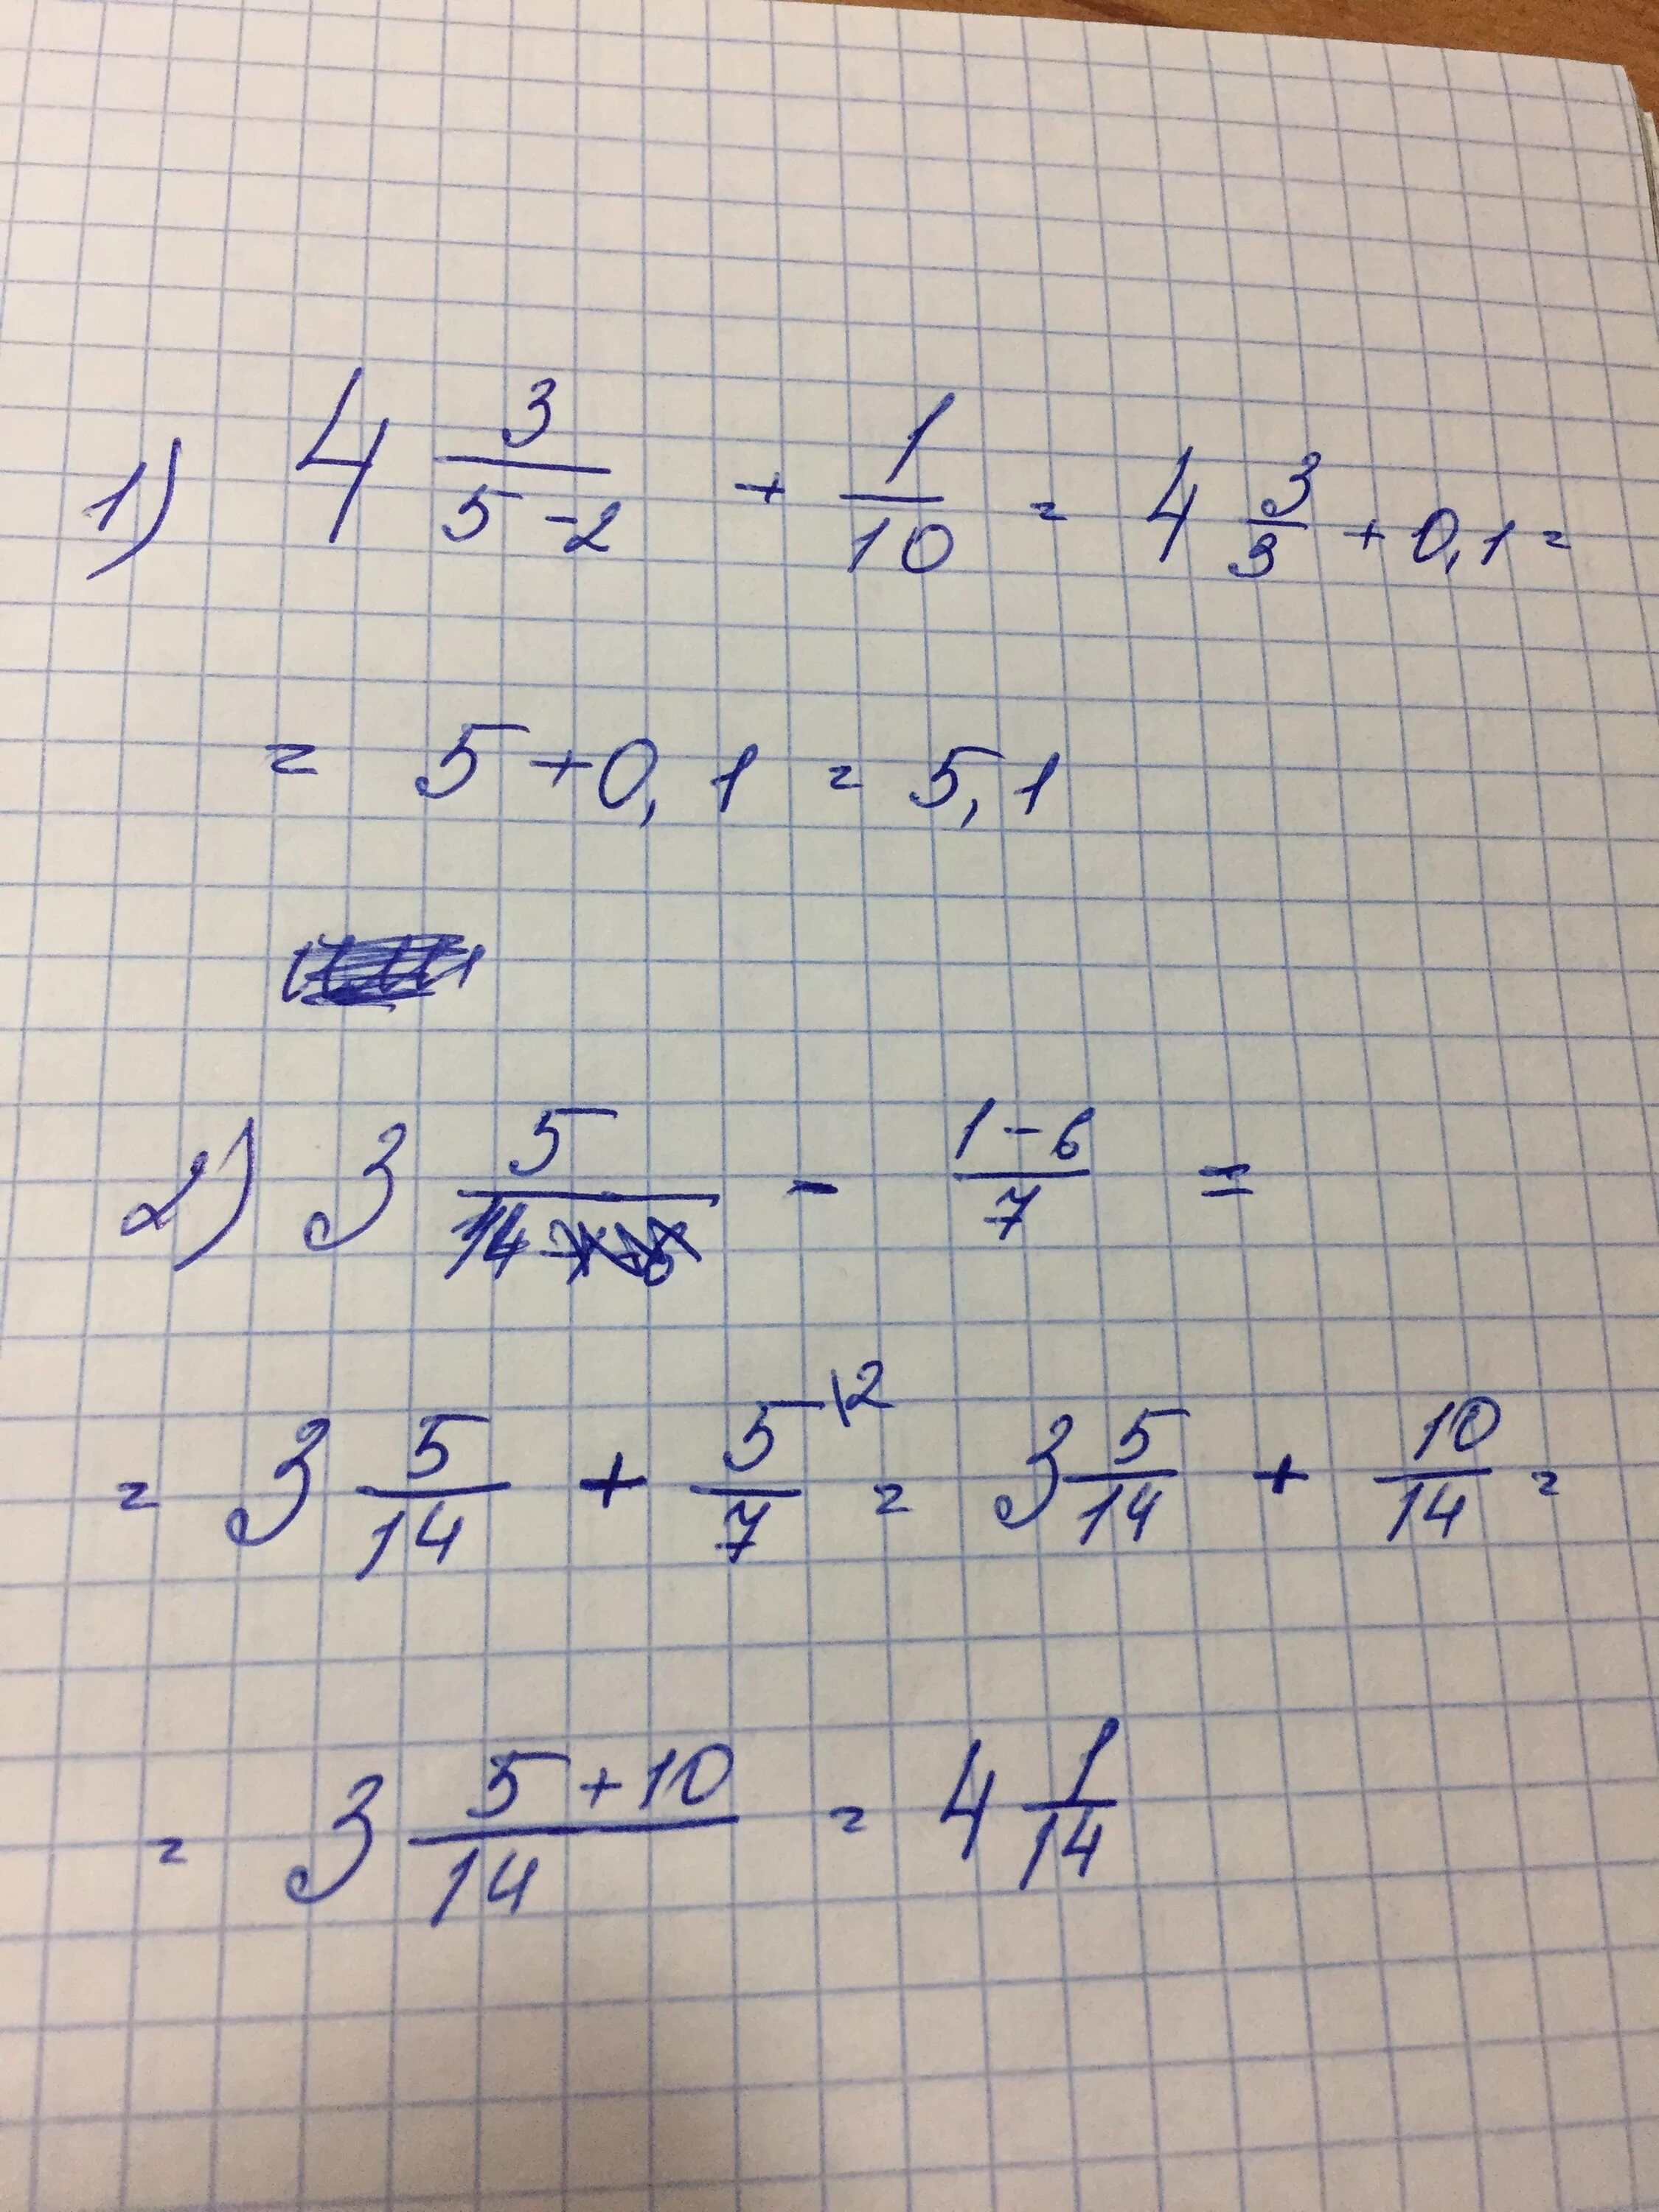 1) 4 3/(5-2) + 1/10 = 4 3/3 + 0,1 =
= 5 + 0,1 = 5,1
2) 3 5/14 - (1-6)/7 =
= 3 5/14 + 5/7 \2 = 3 5/14 + 10/14 =
= 3 (5+10)/14 = 4 1/14